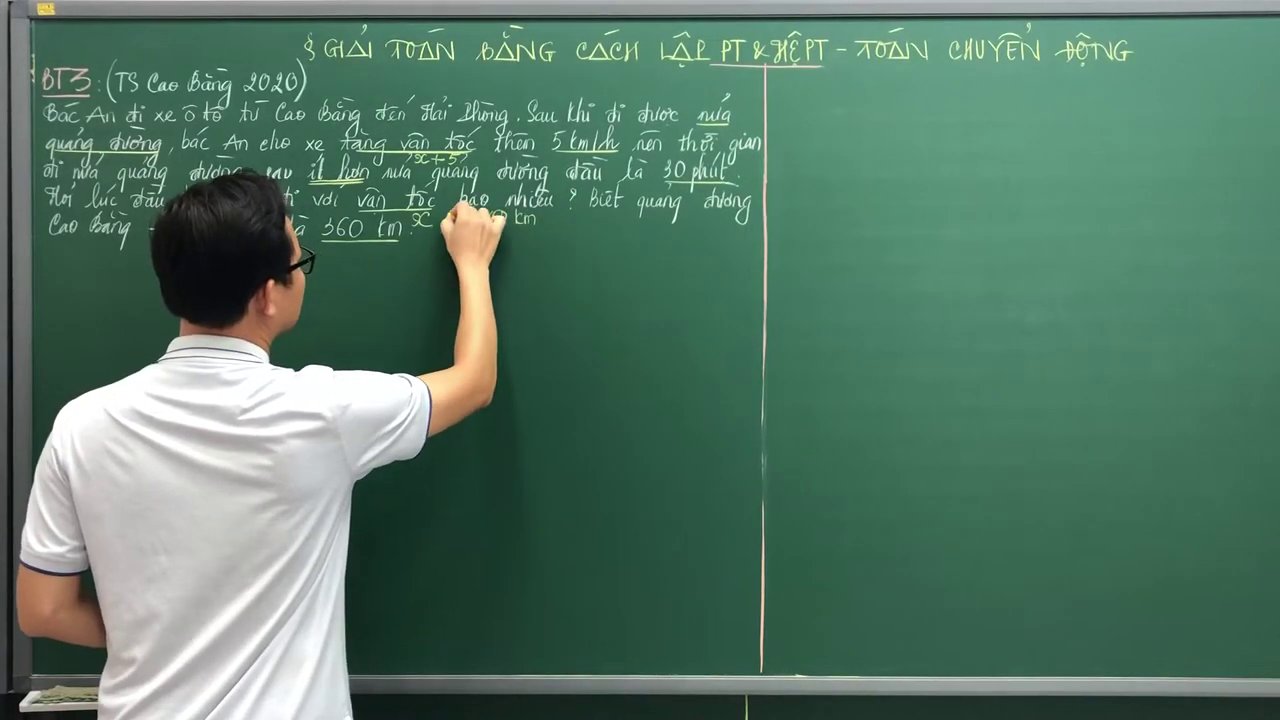 § GIẢI TOÁN BẰNG CÁCH LẬP PT & HỆ PT - TOÁN CHUYỂN ĐỘNG
BT3 : (TS Cao Bằng 2020)
Bác An đi xe ô tô từ Cao Bằng đến Hải Phòng. Sau khi đi được nửa
quãng đường, bác An cho xe tăng vận tốc thêm 5 km/h nên thời gian
x+5
đi nửa quãng đường sau ít hơn nửa quãng đường đầu là 30 phút.
Hỏi lúc đầu với vận tốc bao nhiêu ? Biết quãng đường
x km
Cao Bằng - là 360 km.